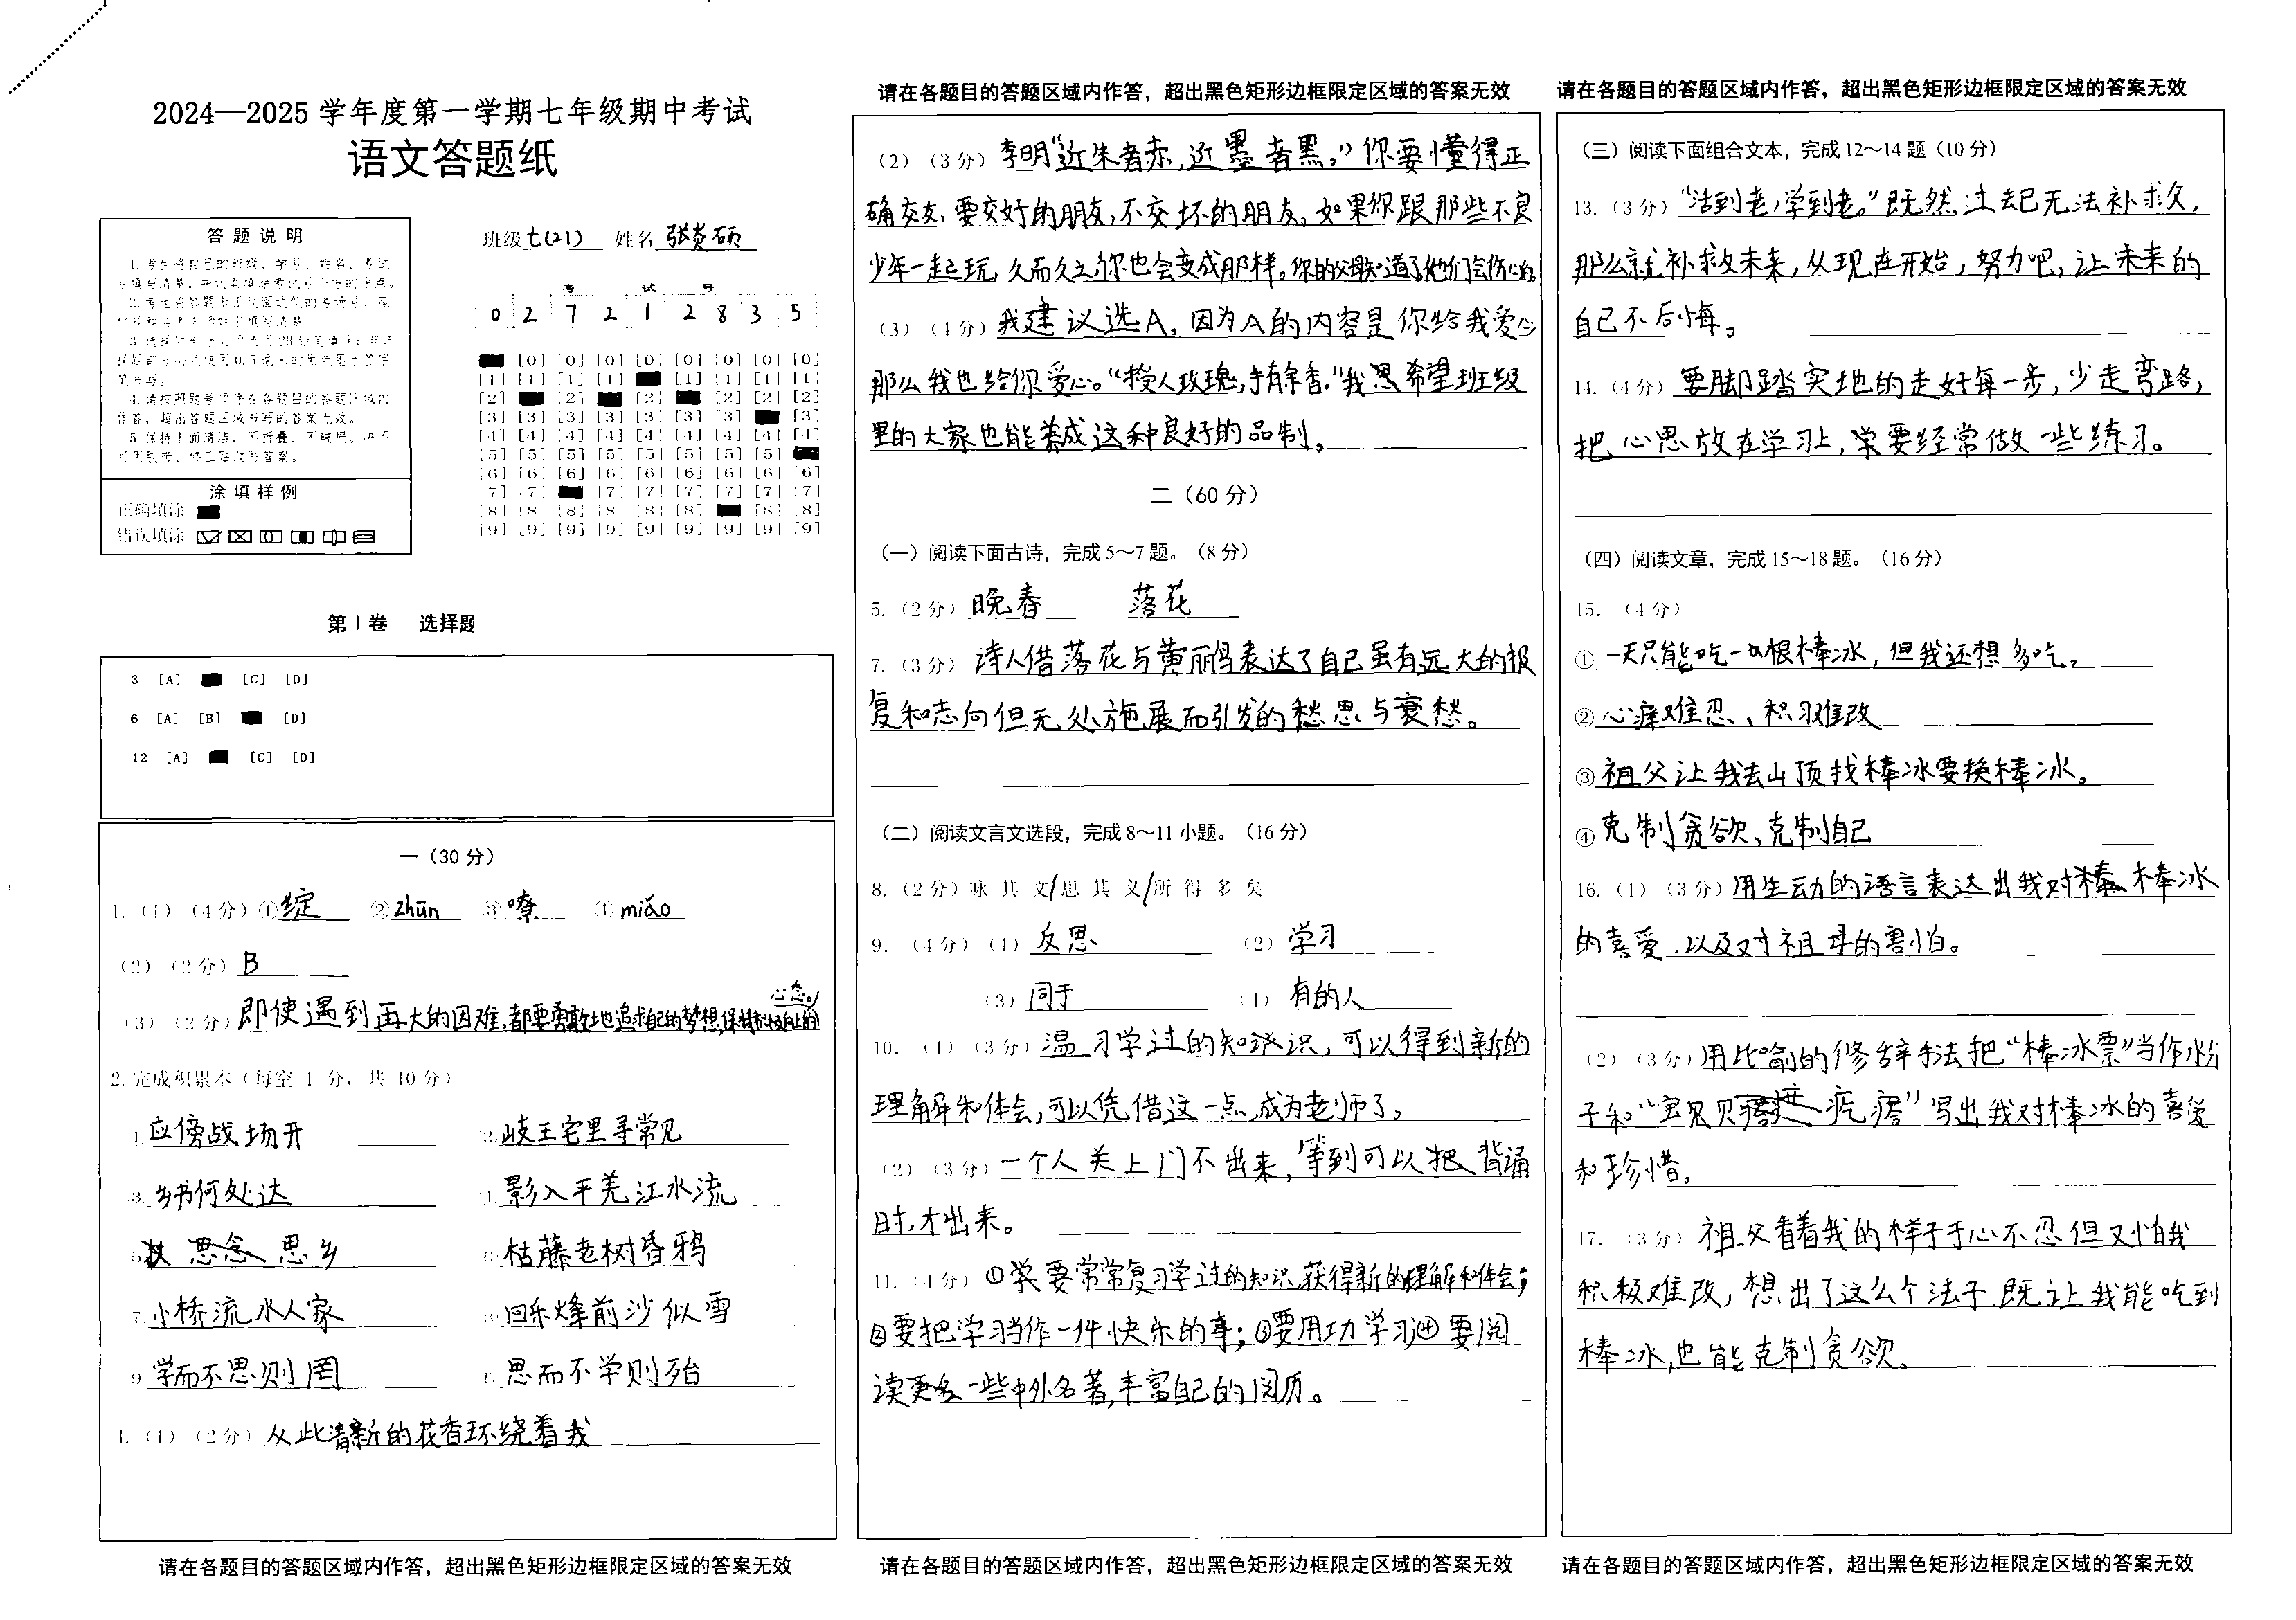 2024—2025学年度第一学期七年级期中考试
语文答题纸
答题说明
4.请按照题号顺序在各题目的答题区域内
作答，超出答题区域书写的答案无效。
5.保持卡面清洁，不折叠、不破损，
涂填样例
正确填涂
错误填涂
班级 七(21) 姓名 张炎硕
考 试 号
0 2 7 2 1 2 8 3 5
[0] [0] [0] [0] [0] [0] [0] [0]
[1] [1] [1] [1] [1] [1] [1] [1]
[2] [2] [2] [2] [2] [2]
[3] [3] [3] [3] [3] [3] [3] [3]
[4] [4] [4] [4] [4] [4] [4] [4] [4]
[5] [5] [5] [5] [5] [5] [5] [5]
[6] [6] [6] [6] [6] [6] [6] [6] [6]
[7] [7] [7] [7] [7] [7] [7] [7]
[8] [8] [8] [8] [8] [8] [8] [8]
[9] [9] [9] [9] [9] [9] [9] [9] [9]
第Ⅰ卷 选择题
3 [A] [C] [D]
6 [A] [B] [D]
12 [A] [C] [D]
一（30分）
1.（1）（4分）①绽 ②zhūn ③嘹 ④miǎo
（2）（2分）B
（3）（2分）即使遇到再大的困难,都要勇敢地追求自己的梦想,保持积极向上的
心态。
2.完成积累本（每空 1 分，共 10 分）
1.应傍战场开 2.岐王宅里寻常见
3.乡书何处达 4.影入平羌江水流
5. 思念 思乡 6.枯藤老树昏鸦
7.小桥流水人家 8.回乐烽前沙似雪
9.学而不思则罔 10.思而不学则殆
4.（1）（2分）从此清新的花香环绕着我
请在各题目的答题区域内作答，超出黑色矩形边框限定区域的答案无效
请在各题目的答题区域内作答，超出黑色矩形边框限定区域的答案无效
（2）（3分）李明“近朱者赤,近墨者黑。”你要懂得正
确交友,要交好的朋友,不交坏的朋友。如果你跟那些不良
少年一起玩,久而久之,你也会变成那样。你的父母知道了他们会伤心的
（3）（4分）我建议选A,因为A的内容是你给我爱心
那么我也给你爱心。“授人玫瑰,手有余香。”我思希望班级
里的大家也能养成这种良好的品制。
二（60分）
（一）阅读下面古诗，完成5～7题。（8分）
5.（2分）晚春 落花
7.（3分）诗人借落花与黄鹂鸟表达了自己虽有远大的报
复和志向但无处施展而引发的愁思与哀愁。
（二）阅读文言文选段，完成8～11小题。（16分）
8.（2分）咏 其 文/思 其 义/所 得 多 矣
9.（4分）（1）反思 （2）学习
（3）同于 （4）有的人
10.（1）（3分）温习学过的知识,可以得到新的
理解和体会,可以凭借这一点,成为老师了。
（2）（3分）一个人关上门不出来,等到可以把背诵
时,才出来。
11.（4分）①常要常常复习学过的知识,获得新的理解和体会;
②要把学习当作一件快乐的事;③要用功学习④要阅
读更多一些中外名著,丰富自己的阅历。
请在各题目的答题区域内作答，超出黑色矩形边框限定区域的答案无效
请在各题目的答题区域内作答，超出黑色矩形边框限定区域的答案无效
（三）阅读下面组合文本，完成12～14题（10分）
13.（3分）“活到老,学到老。”既然过去已无法补求久,
那么就补救未来,从现在开始,努力吧,让未来的
自己不后悔。
14.（4分）要脚踏实地的走好每一步,少走弯路,
把心思放在学习上,常要经常做一些练习。
（四）阅读文章，完成15～18题。（16分）
15.（4分）
①一天只能吃一根棒冰,但我还想多吃。
②心痒难忍、积习难改
③祖父让我去山顶找棒冰要换棒冰。
④克制贪欲、克制自己
16.（1）（3分）用生动的语言表达出我对棒 棒冰
的喜爱,以及对祖母的害怕。
（2）（3分）用比喻的修辞手法把“棒冰票”当作水分
子和“宝贝 疙瘩”写出我对棒冰的喜爱
和珍惜。
17.（3分）祖父看着我的样子于心不忍但又怕我
积极难改,想出了这么个法子,既让我能吃到
棒冰,也能克制贪欲。
请在各题目的答题区域内作答，超出黑色矩形边框限定区域的答案无效